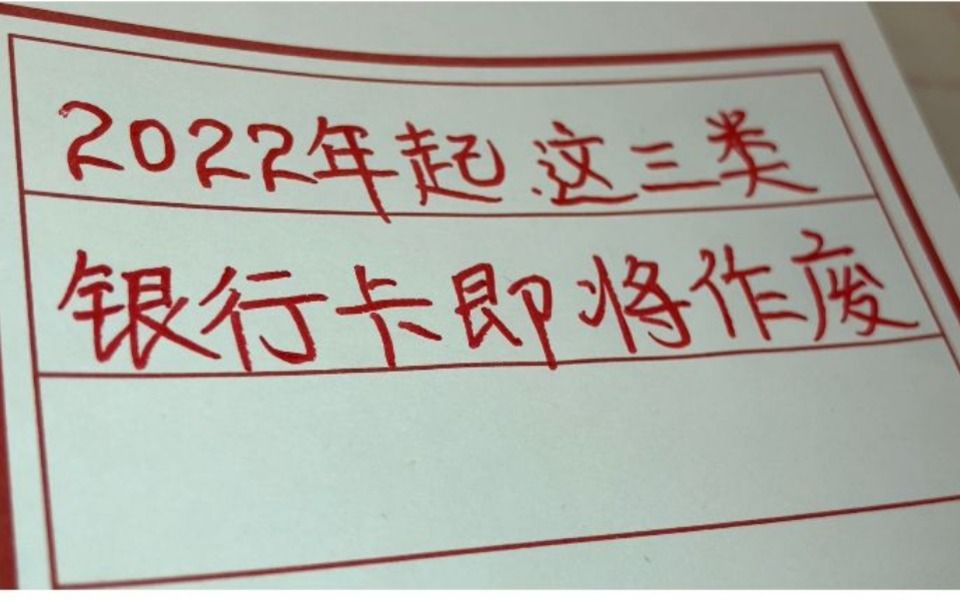 2022年起这三类
银行卡即将作废